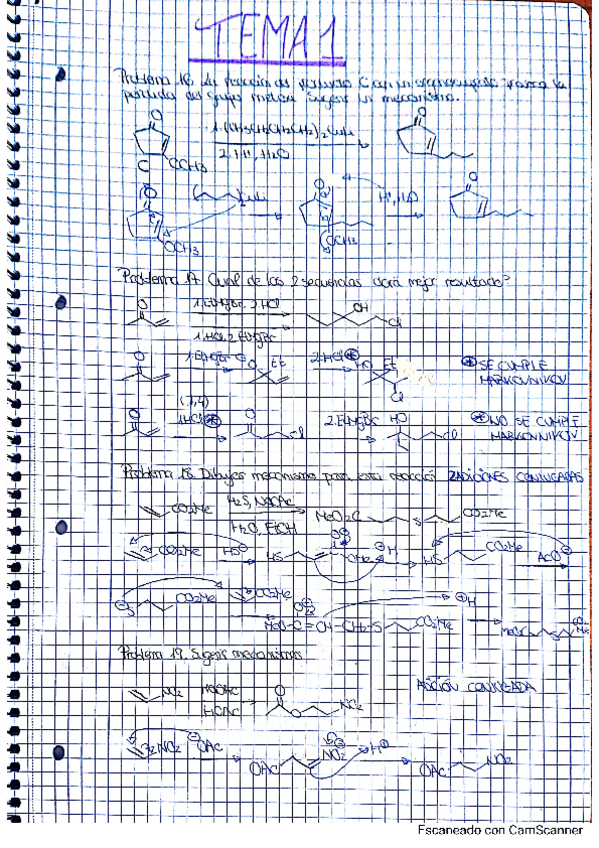 TEMA 1
Problema 16. La reacción de producto C con un organocuprato provoca la
pérdida del grupo metoxi. Sugerir un mecanismo.
O
1. (CH3CH2CH2CH2)2CuLi
2. H+, H2O
O
C
OCH3
O
CuLi
O
H+, H2O
O
OCH3
OCH3
Problema 17. Cual de las 2 secuencias dará mejor resultado?
O
1. EtMgBr 2. HCl
OH
Cl
1. HCl 2. EtMgBr
O
1. EtMgBr
O
Et
2. HCl
HO
Et
Cl
SE CUMPLE
MARKOVNIKOV
(1,4)
O
1. HCl
O
Cl
2. EtMgBr
HO
Cl
NO SE CUMPLE
MARKOVNIKOV
Problema 18. Dibujar mecanismo para esta reacción 2 ADICIONES CONJUGADAS
CO2Me
H2S, NaOAc
H2O, EtOH
MeO2C
S
CO2Me
CO2Me
HS
HS
OMe
H
HS
CO2Me
AcO
S
CO2Me
CO2Me
MeO-C=CH-CH2-S
CO2Me
H
Problema 19. Sugerir mecanismos
ADICIÓN CONJUGADA
NO2
NaOAc
HOAc
O
O
NO2
NO2
OAc
OAc
NO2
H
OAc
NO2
Escaneado con CamScanner